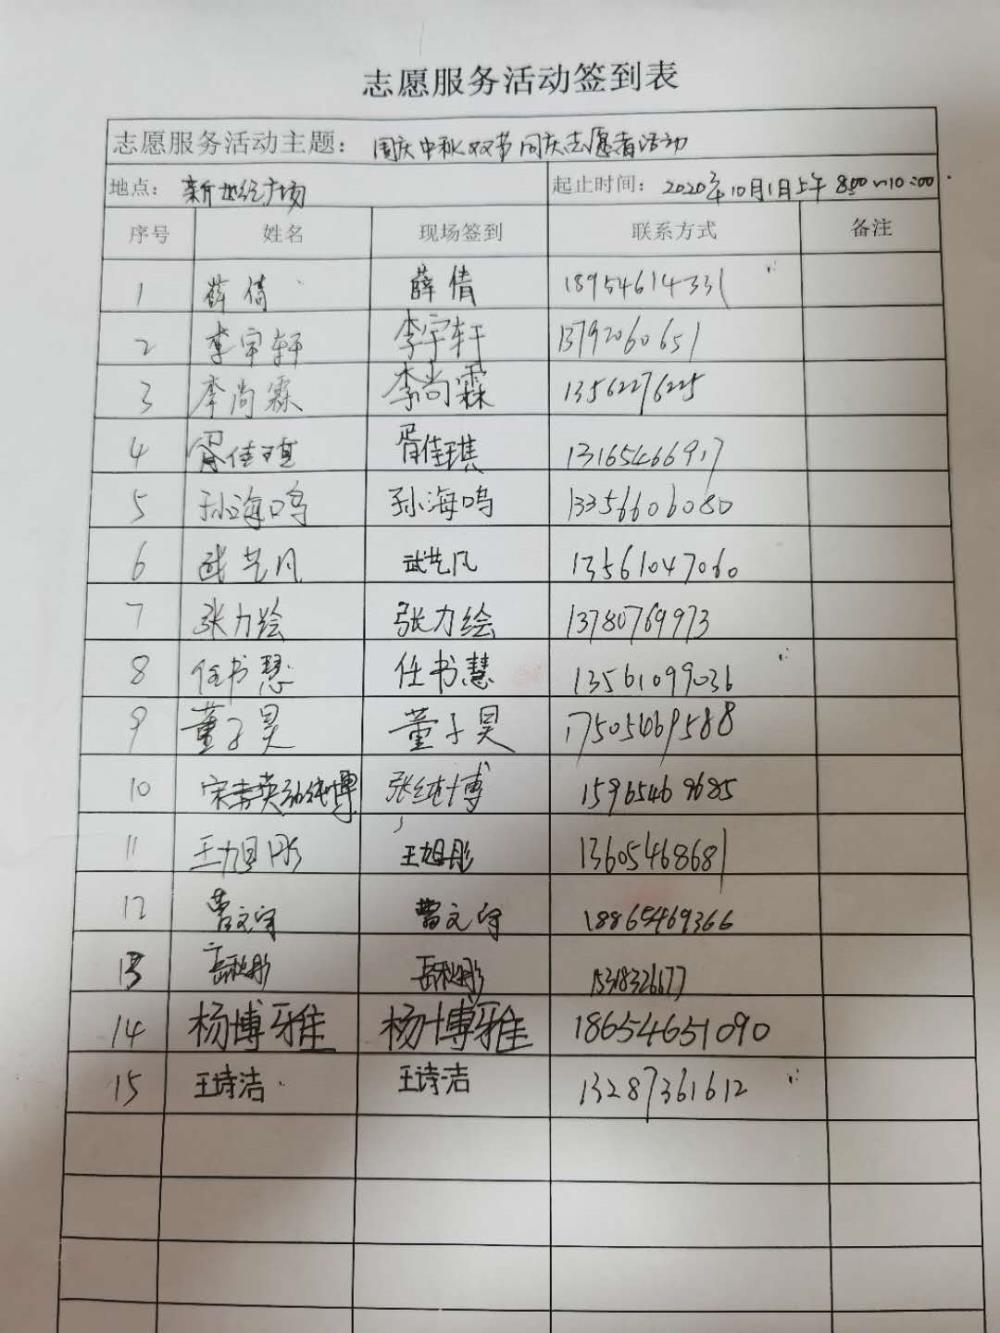 志愿服务活动签到表
志愿服务活动主题： 国庆中秋双节同庆志愿者活动
地点： 新世纪广场 起止时间： 2020年10月1日上午8:00~10:00
序号 姓名 现场签到 联系方式 备注
1 薛倩 薛倩 18954614331
2 李宇轩 李宇轩 13792060651
3 李尚霖 李尚霖 13562276225
4 胥佳琪 胥佳琪 13165466917
5 孙海鸣 孙海鸣 13356606080
6 武艺凡 武艺凡 13561047060
7 张力绘 张力绘 13780769973
8 任书慧 任书慧 13561099036
9 董子昊 董子昊 17505469588
10 张纯博 15965469685
11 王旭彤 王旭彤 13605468681
12 曹文宇 曹文宇 18865469366
13 15318326677
14 杨博雅 杨博雅 18654651090
15 王诗洁 王诗洁 13287361612